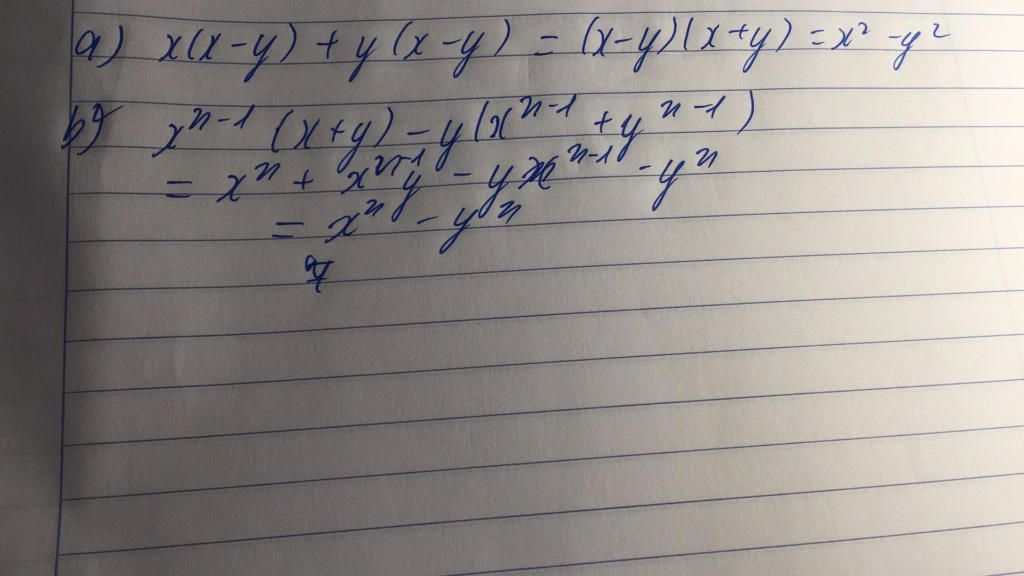 a) x(x-y) + y(x-y) = (x-y)(x+y) = x² - y²
b) xⁿ⁻¹ (x+y) - y(xⁿ⁻¹ + yⁿ⁻¹)
= xⁿ + xⁿ⁻¹y - yxⁿ⁻¹ - yⁿ
= xⁿ - yⁿ